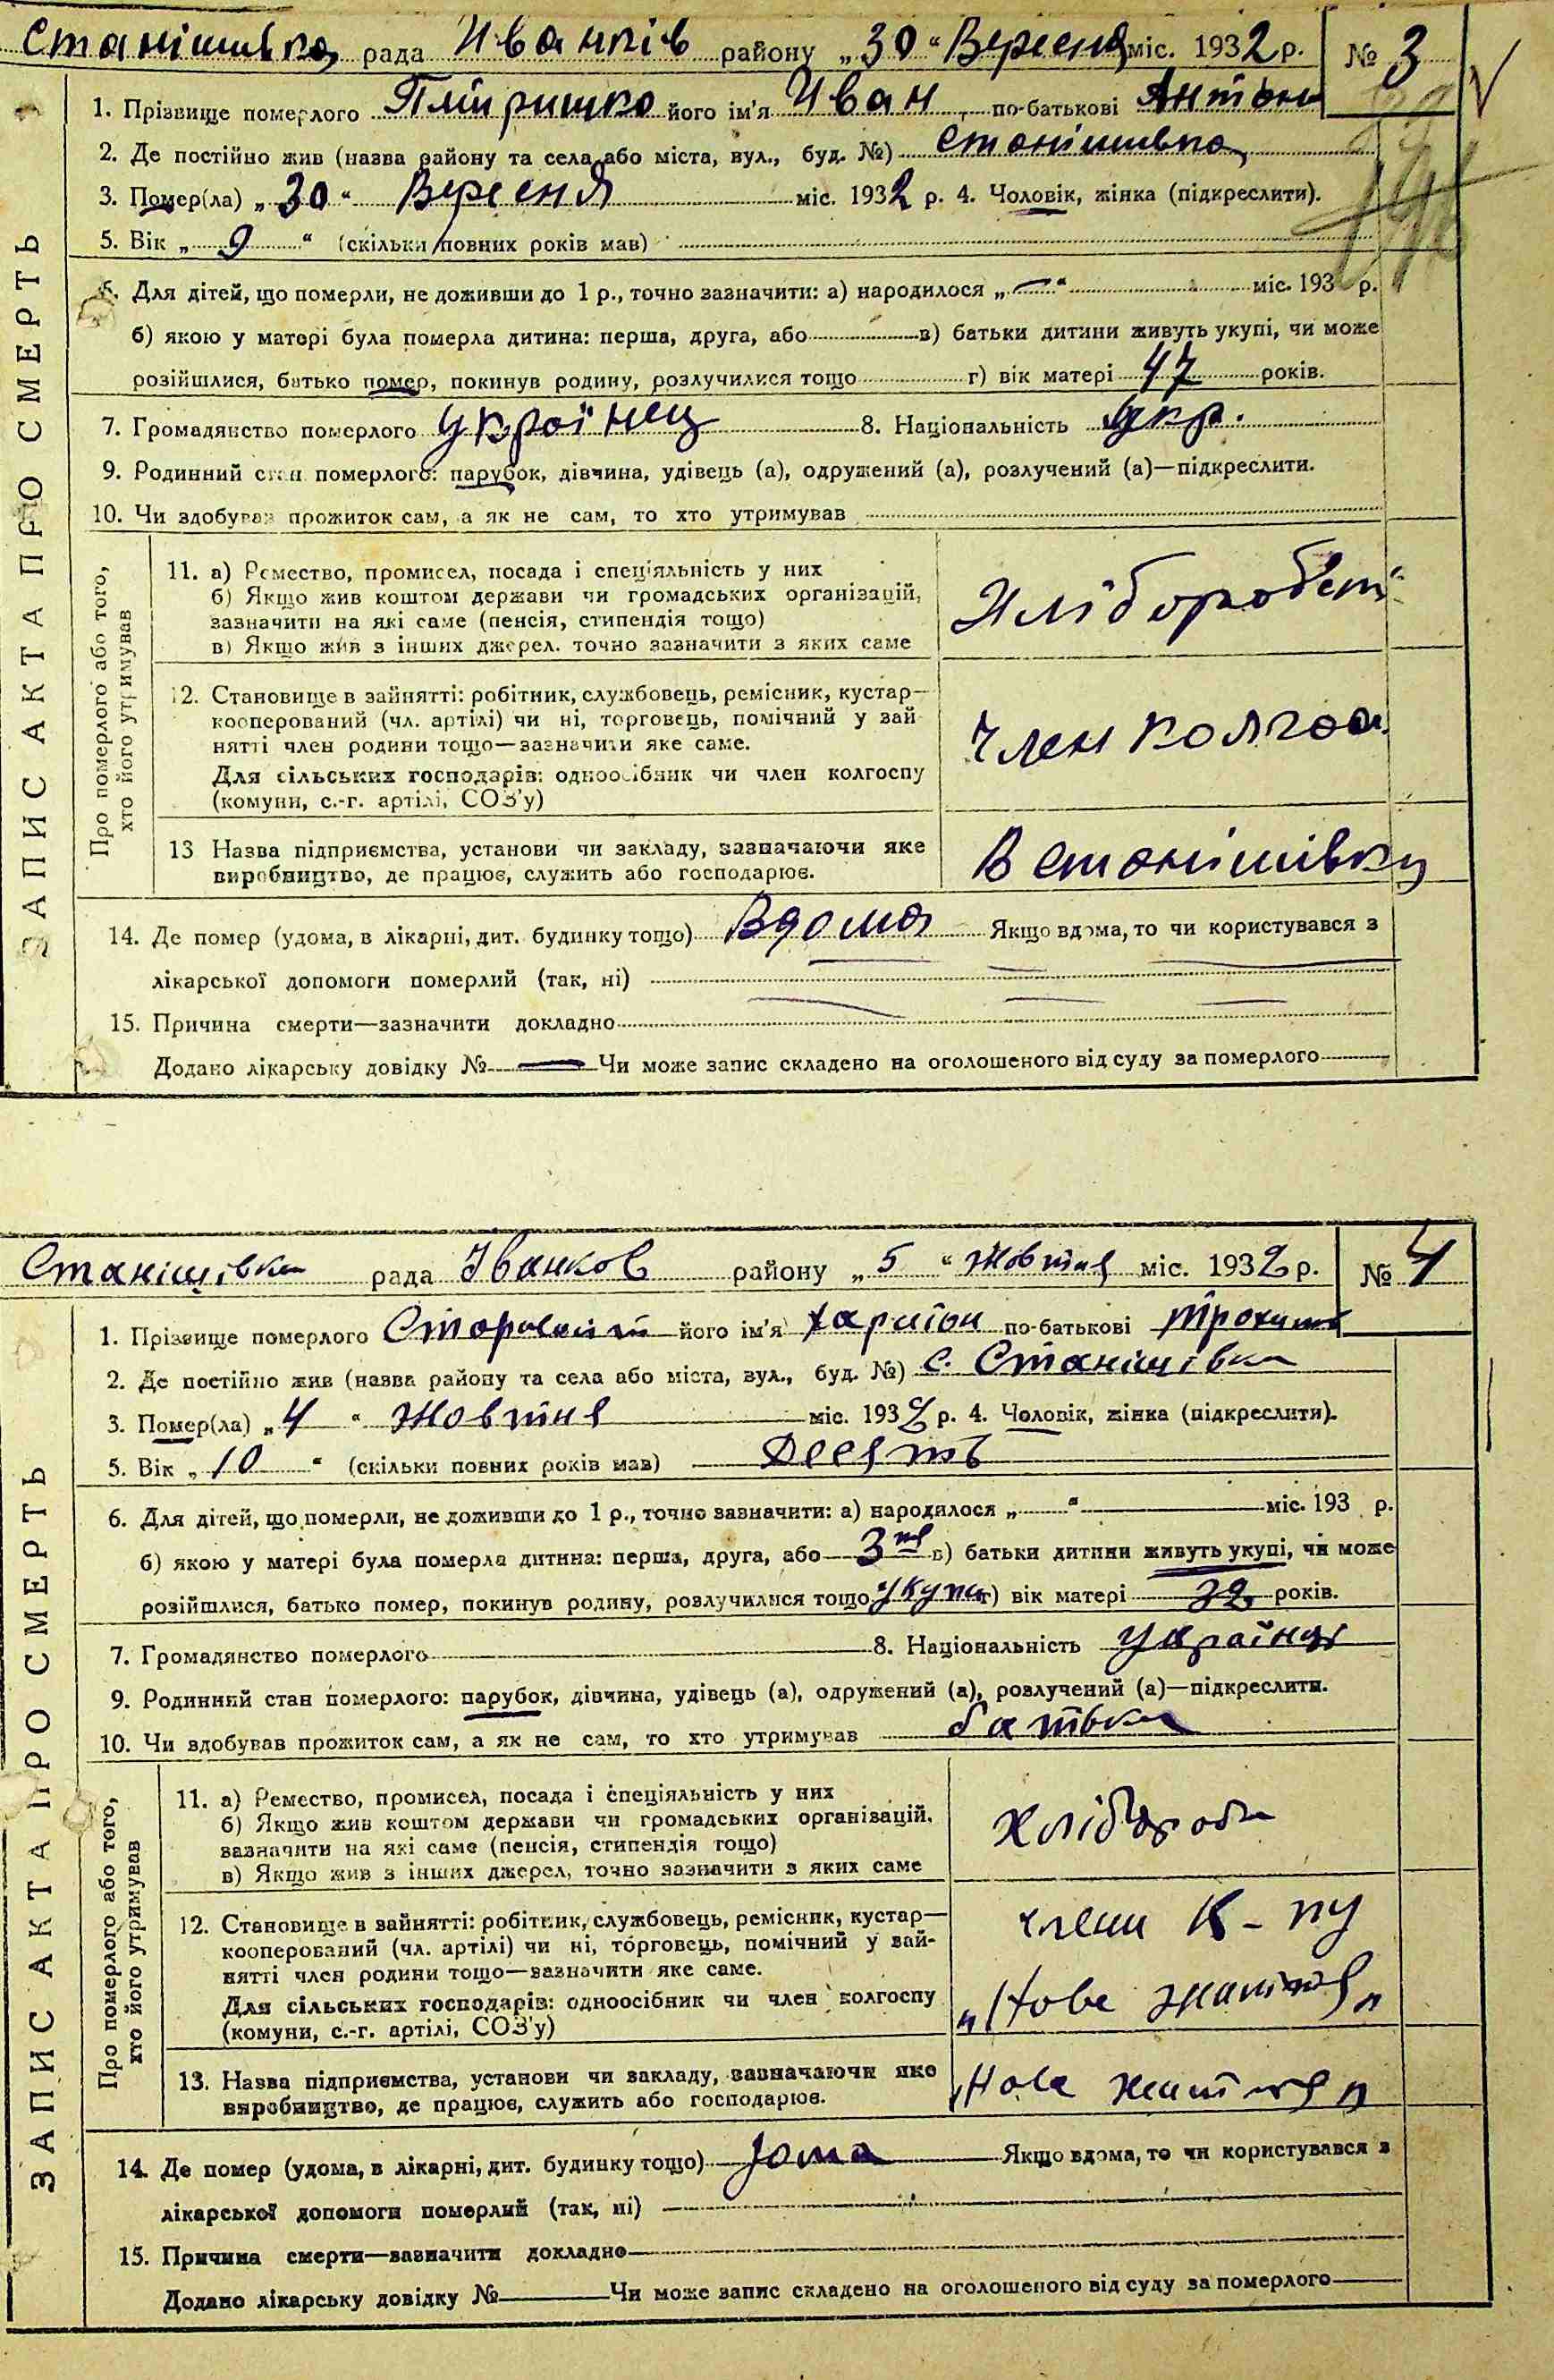 Станішивка рада Иванків району „30“ Вересня міс. 1932 р. № 3
1. Прізвище померлого його ім'я Иван по-батькові Антон
2. Де постійно жив (назва району та села або міста, вул., буд. №) Станишивка
3. Помер(ла) „30“ Вересня міс. 1932 р. 4. Чоловік, жінка (підкреслити).
5. Вік „9“ (скільки повних років мав)
6. Для дітей, що померли, не доживши до 1 р., точно зазначити: а) народилося „—“ міс. 193 р.
б) якою у матері була померла дитина: перша, друга, або в) батьки дитини живуть укупі, чи може
розійшлися, батько помер, покинув родину, розлучилися тощо г) вік матері 47 років.
7. Громадянство померлого Українец 8. Національність Укр.
9. Родинний стан померлого: парубок, дівчина, удівець (а), одружений (а), розлучений (а)—підкреслити.
10. Чи здобував прожиток сам, а як не сам, то хто утримував
ЗАПИС АКТА ПРО СМЕРТЬ
Про померлого або того,
хто його утримував
11. а) Ремество, промисел, посада і спеціяльність у них
б) Якщо жив коштом держави чи громадських організацій,
зазначити на які саме (пенсія, стипендія тощо)
в) Якщо жив з інших джерел, точно зазначити з яких саме
12. Становище в зайнятті: робітник, службовець, ремісник, кустар—
кооперований (чл. артілі) чи ні, торговець, помічний у зай
нятті член родини тощо—зазначити яке саме.
Для сільських господарів: одноосібник чи член колгоспу
(комуни, с.-г. артілі, СОЗ'у)
Член колгос
13 Назва підприємства, установи чи закладу, зазначаючи яке
виробництво, де працює, служить або господарює.
В Станішівку
14. Де помер (удома, в лікарні, дит. будинку тощо) Вдома Якщо вдома, то чи користувався з
лікарської допомоги померлий (так, ні)
15. Причина смерти—зазначити докладно
Додано лікарську довідку № — Чи може запис складено на оголошеного від суду за померлого
Станішівка рада Іванков району „5“ Жовтня міс. 1932 р. № 4
1. Прізвище померлого його ім'я Харитон по-батькові Трохим
2. Де постійно жив (назва району та села або міста, вул., буд. №) с. Станішівка
3. Помер(ла) „4“ Жовтня міс. 1932 р. 4. Чоловік, жінка (підкреслити).
5. Вік „10“ (скільки повних років мав) Десять
6. Для дітей, що померли, не доживши до 1 р., точно зазначити: а) народилося „ “ міс. 193 р.
б) якою у матері була померла дитина: перша, друга, або 3тя в) батьки дитини живуть укупі, чи може
розійшлися, батько помер, покинув родину, розлучилися тощо укупи г) вік матері 32 років.
7. Громадянство померлого 8. Національність українц
9. Родинний стан померлого: парубок, дівчина, удівець (а), одружений (а), розлучений (а)—підкреслити.
10. Чи здобував прожиток сам, а як не сам, то хто утримував батьки
ЗАПИС АКТА ПРО СМЕРТЬ
Про померлого або того,
хто його утримував
11. а) Ремество, промисел, посада і спеціяльність у них
б) Якщо жив коштом держави чи громадських організацій,
зазначити на які саме (пенсія, стипендія тощо)
в) Якщо жив з інших джерел, точно зазначити з яких саме
Хлібороби
12. Становище в зайнятті: робітник, службовець, ремісник, кустар—
кооперований (чл. артілі) чи ні, торговець, помічний у зай-
нятті член родини тощо—зазначити яке саме.
Для сільських господарів: одноосібник чи член колгоспу
(комуни, с.-г. артілі, СОЗ'у)
члени К-пу
„Нове життя„
13. Назва підприємства, установи чи закладу, зазначаючи яке
виробництво, де працює, служить або господарює.
„Нове життя„
14. Де помер (удома, в лікарні, дит. будинку тощо) дома Якщо вдома, то чи користувався з
лікарської допомоги померлий (так, ні)
15. Причина смерти—зазначити докладно
Додано лікарську довідку № Чи може запис складено на оголошеного від суду за померлого